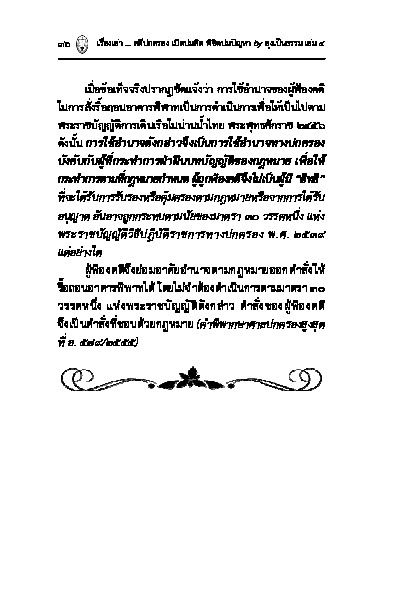 ๓๒ เรื่องเล่า ... คดีปกครอง เปิดปมคิด พิชิตปมปัญหา by ลุงเป็นธรรม เล่ม ๔
เมื่อข้อเท็จจริงปรากฏชัดแจ้งว่า การใช้อำนาจของผู้ฟ้องคดี
ในการสั่งรื้อถอนอาคารพิพาทเป็นการดำเนินการเพื่อให้เป็นไปตาม
พระราชบัญญัติการเดินเรือในน่านน้ำไทย พระพุทธศักราช ๒๔๕๖
ดังนั้น การใช้อำนาจดังกล่าวจึงเป็นการใช้อำนาจทางปกครอง
บังคับกับผู้ที่กระทำการฝ่าฝืนบทบัญญัติของกฎหมาย เพื่อให้
กระทำการตามที่กฎหมายกำหนด ผู้ถูกฟ้องคดีจึงไม่เป็นผู้มี "สิทธิ"
ที่จะได้รับการรับรองหรือคุ้มครองตามกฎหมายหรือจากการได้รับ
อนุญาต อันอาจถูกกระทบตามนัยของมาตรา ๓๐ วรรคหนึ่ง แห่ง
พระราชบัญญัติวิธีปฏิบัติราชการทางปกครอง พ.ศ. ๒๕๓๙
แต่อย่างใด
ผู้ฟ้องคดีจึงย่อมอาศัยอำนาจตามกฎหมายออกคำสั่งให้
รื้อถอนอาคารพิพาทได้ โดยไม่จำต้องดำเนินการตามมาตรา ๓๐
วรรคหนึ่ง แห่งพระราชบัญญัติดังกล่าว คำสั่งของผู้ฟ้องคดี
จึงเป็นคำสั่งที่ชอบด้วยกฎหมาย (คำพิพากษาศาลปกครองสูงสุด
ที่ อ. ๕๗๘/๒๕๕๕)